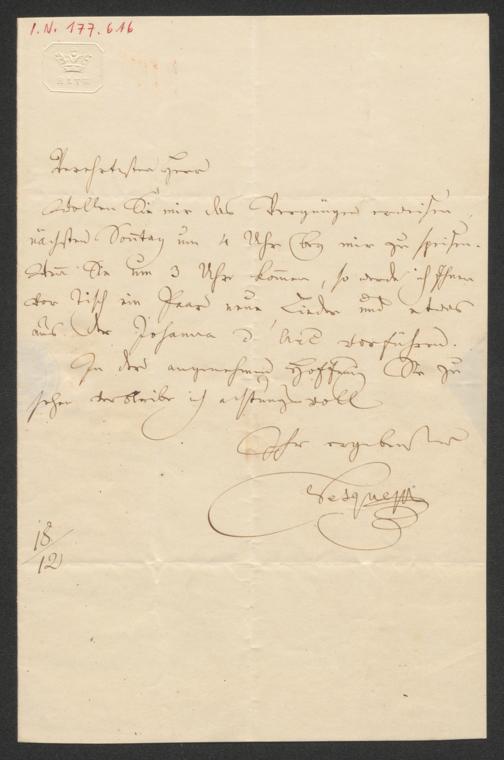 I.N. 177.616
BATH
Verehrtester Herr
Wollen Sie mir das Vergnügen erweisen,
nächsten Sonntag um 4 Uhr bey mir zu speisen.
Wenn Sie um 3 Uhr kommen, so werde ich Ihnen
vor Tisch ein Paar neue Lieder und etwas
aus der Johanna d'Arc vorführen.
In der angenehmen Hoffnung Sie zu
sehen verbleibe ich achtungsvoll
Ihr ergebenster
Vesque
18/12